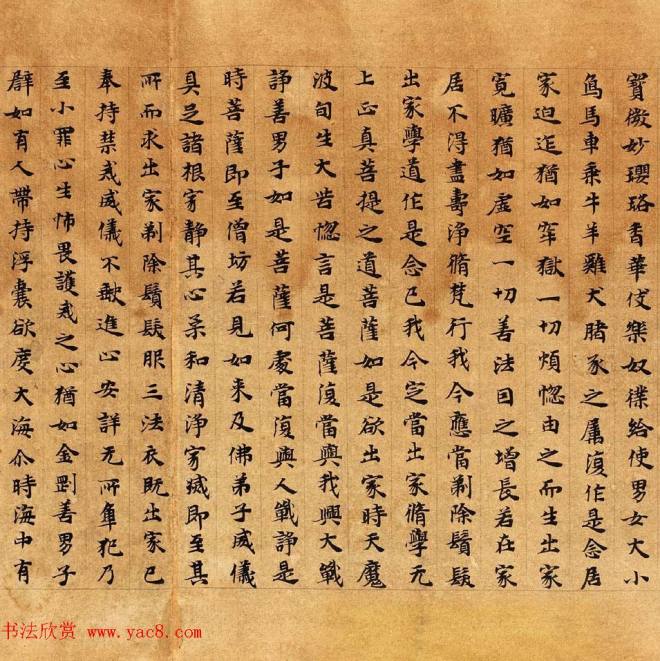 寶微妙瓔珞香華伎樂奴僕給使男女大小
為馬車乘牛羊雞犬賭豕之屬復作是念居
家迫迮猶如牢獄一切煩惱由之而生出家
寬曠猶如虛空一切善法因之增長若在家
居不得盡壽淨脩梵行我今應當剃除鬚髮
出家學道作是念已我今定當出家脩學无
上正真菩提之道菩薩如是欲出家時天魔
波旬生大苦惱言是菩薩復當與我興大戰
諍善男子如是菩薩何處當復與人戰諍是
時菩薩即至僧坊若見如来及佛弟子威儀
具足諸根寂靜其心柔和清淨寂滅即至其
所而求出家剃除鬚髮服三法衣既出家已
奉持禁戒威儀不缺進止安詳无所犯乃
至小罪心生怖畏護戒之心猶如金剛善男子
辟如有人帶持浮囊欲度大海尒時海中有
书法欣赏 www.yac8.com